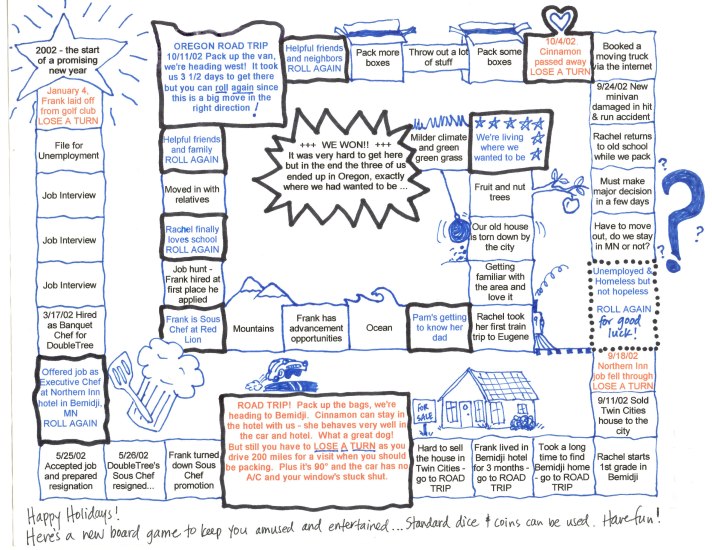 2002 - the start
of a promising
new year
January 4,
Frank laid off
from golf club
LOSE A TURN
File for
Unemployment
Job Interview
Job Interview
Job Interview
3/17/02 Hired
as Banquet
Chef for
DoubleTree
Offered job as
Executive Chef
at Northern Inn
hotel in Bemidji,
MN
ROLL AGAIN
5/25/02
Accepted job
and prepared
resignation
5/26/02
DoubleTree's
Sous Chef
resigned...
Frank turned
down Sous
Chef
promotion
ROAD TRIP! Pack up the bags, we're
heading to Bemidji. Cinnamon can stay in
the hotel with us - she behaves very well in
the car and hotel. What a great dog!
But still you have to LOSE A TURN as you
drive 200 miles for a visit when you should
be packing. Plus it's 90° and the car has no
A/C and your window's stuck shut.
FOR
SALE
Hard to sell
the house in
Twin Cities -
go to ROAD
TRIP
Frank lived in
Bemidji hotel
for 3 months -
go to ROAD
TRIP
Took a long
time to find
Bemidji home
- go to ROAD
TRIP
Rachel starts
1st grade in
Bemidji
9/11/02 Sold
Twin Cities
house to the
city
9/18/02
Northern Inn
job fell through
LOSE A TURN
Unemployed &
Homeless but
not hopeless
ROLL AGAIN
for good
luck!
Have to move
out, do we stay
in MN or not?
? ? ? ? ?
Must make
major decision
in a few days
Rachel returns
to old school
while we pack
9/24/02 New
minivan
damaged in hit
& run accident
Booked a
moving truck
via the internet
10/4/02
Cinnamon
passed away
LOSE A TURN
Pack some
boxes
Throw out a lot
of stuff
Pack more
boxes
Helpful friends
and neighbors
ROLL AGAIN
OREGON ROAD TRIP
10/11/02 Pack up the van,
we're heading west! It took
us 3 1/2 days to get there
but you can roll again since
this is a big move in the
right direction !
Helpful friends
and family
ROLL AGAIN
Moved in with
relatives
Rachel finally
loves school
ROLL AGAIN
Job hunt -
Frank hired at
first place he
applied
Frank is Sous
Chef at Red
Lion
Mountains
Frank has
advancement
opportunities
Ocean
Pam's getting
to know her
dad
Rachel took
her first train
trip to Eugene
Getting
familiar with
the area and
love it
Our old house
is torn down by
the city
Fruit and nut
trees
We're living
where we
wanted to be
Milder climate
and green
green grass
+++ WE WON!! +++
It was very hard to get here
but in the end the three of us
ended up in Oregon, exactly
where we had wanted to be ...
Happy Holidays!
Here's a new board game to keep you amused and entertained... Standard dice & coins can be used. Have fun!